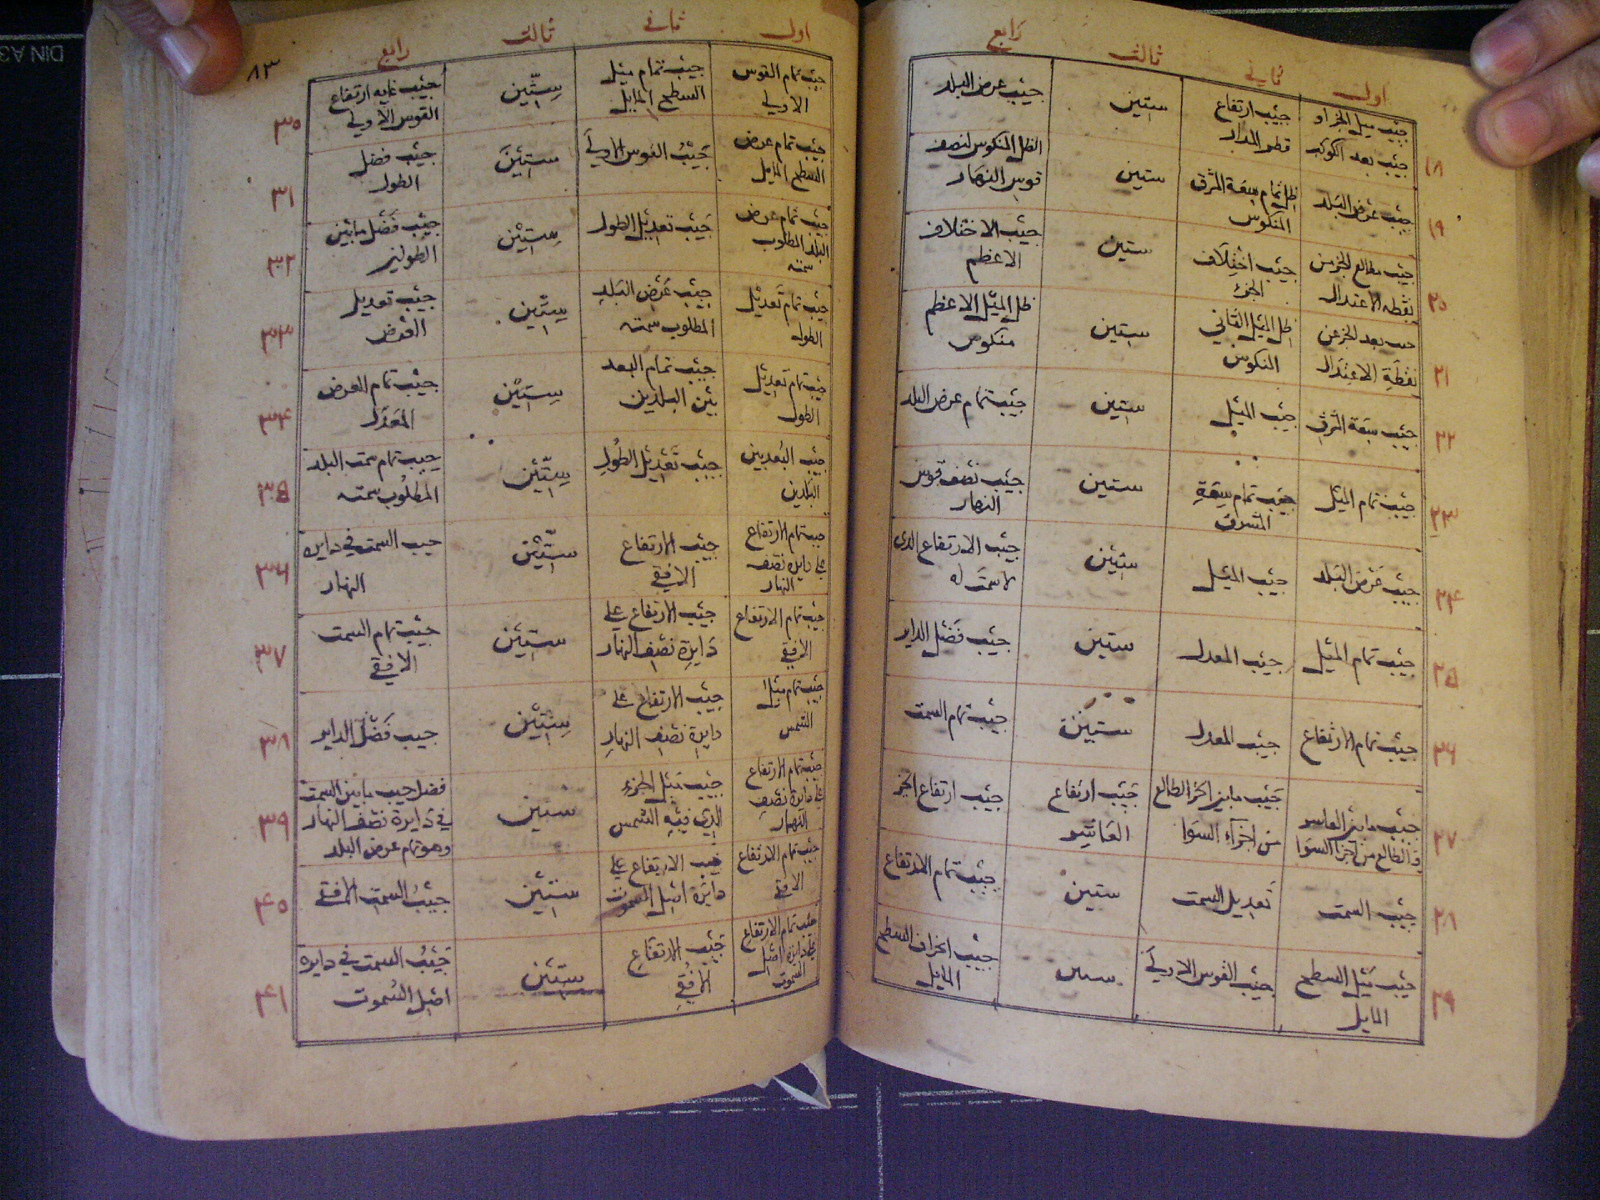 اول ثاني ثالث رابع
١٨ جيب ميل الجزء او جيب بعد الكوكب جيب ارتفاع قطر المدار ستين جيب عرض البلد
١٩ جيب عرض البلد ظل تمام سعة الشرق المنكوس ستين الظل المنكوس لنصف قوس النهار
٢٠ جيب مطالع الجزء من نقطه الاعتدال جيب اختلاف الجزء ستين جيب الاختلاف الاعظم
٢١ جيب بعد الجزء عن نقطة الاعتدال ظل الميل الثاني المنكوس ستين ظل الميل الاعظم منكوس
٢٢ جيب سعة الشرق جيب الميل ستين جيب تمام عرض البلد
٢٣ جيب تمام الميل جيب تمام سعة المشرق ستين جيب نصف قوس النهار
٢٤ جيب عرض البلد جيب الميل ستين جيب الارتفاع الذي لا سمت له
٢٥ جيب تمام الميل جيب المعدل ستين جيب فضل الداير
٢٦ جيب تمام الارتفاع جيب المعدل ستين جيب تمام السمت
٢٧ جيب مابين العاشر والطالع من اجزا السوا جيب مابين الجزء الطالع من اجزآء السوا جيب ارتفاع العاشر جيب ارتفاع الجزء
٢٨ جيب السمت تعديل السمت ستين جيب تمام الارتفاع
٢٩ جيب ميل السطح المايل جيب القوس الاولي ستين جيب انحراف السطح المايل
٨٣
اول ثاني ثالث رابع
٣٠ جيب تمام القوس الاولي جيب تمام ميل السطح المايل ستين جيب غايه ارتفاع القوس الاولي
٣١ جيب تمام عرض السطح المايل جيب القوس الاولي ستين جيب فضل الطول
٣٢ جيب تمام عرض البلد المطلوب سمته جيب تعديل الطول ستين جيب فضل مابين الطولين
٣٣ جيب تمام تعديل الطول جيب عرض البلد المطلوب سمته ستين جيب تعديل العرض
٣٤ جيب تمام تعديل الطول جيب تمام البعد بين البلدين ستين جيب تمام العرض المعدل
٣٥ جيب البعد بين البلدين جيب تعديل الطول ستين جيب تمام سمت البلد المطلوب سمته
٣٦ جيب تمام الارتفاع علي دايرة نصف النهار جيب الارتفاع الافقي ستين جيب السمت في دايرة النهار
٣٧ جيب تمام الارتفاع الافقي جيب الارتفاع علي دايرة نصف النهار ستين جيب تمام السمت الافقي
٣٨ جيب تمام ميل الشمس جيب الارتفاع علي دايرة نصف النهار ستين جيب فضل الداير
٣٩ جيب تمام الارتفاع علي دايرة نصف النهار جيب ميل الجزء الذي فيه الشمس ستين فضل جيب مابين السمت في دايرة نصف النهار وهو تمام عرض البلد
٤٠ جيب تمام الارتفاع الافقي جيب الارتفاع علي دايرة اصل السموت ستين جيب السمت الافقي
٤١ جيب تمام الارتفاع علي دايرة اصل السموت جيب الارتفاع الافقي ستين جيب السمت في دايره اصل السموت